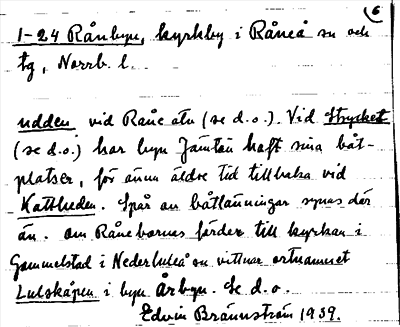 6
1-24 Rånbyn, kyrkby i Råneå sn och
tg, Norrb. l.
udden vid Råne älv (se d.o.). Vid Strycket
(se d.o.) har byn Jämtön haft sina båt-
platser, för ännu äldre tid tillbaka vid
Kattheden. Spår av båtlänningar synas där
än. Om Rånebornas färder till kyrkan i
Gammelstad i Nederluleå sn vittnar ortnamnet
Lulskåpen i byn Årbyn. Se d.o.
Edvin Brännström 1939.